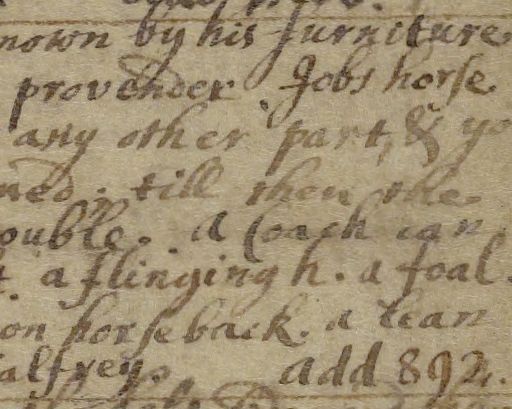 nown by his furniture
provender. Jobs horse
any other part, & yo
ned. till then the
ouble. A Coach can
t. a flinging h. a foal.
on horseback. a lean
alfrey. add 892.